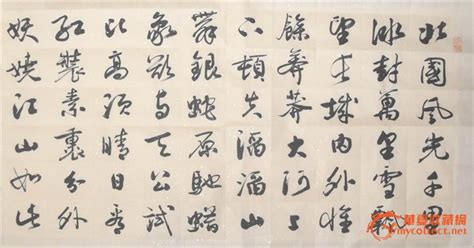 北國風光千里
冰封萬里雪飄
望长城内外惟
餘莽莽大河上
下頓失滔滔山
舞銀蛇原馳蜡
象欲与天公試
比高须晴日看
紅裝素裹分外
妖嬈江山如此
華夏收藏網
mycollect.net